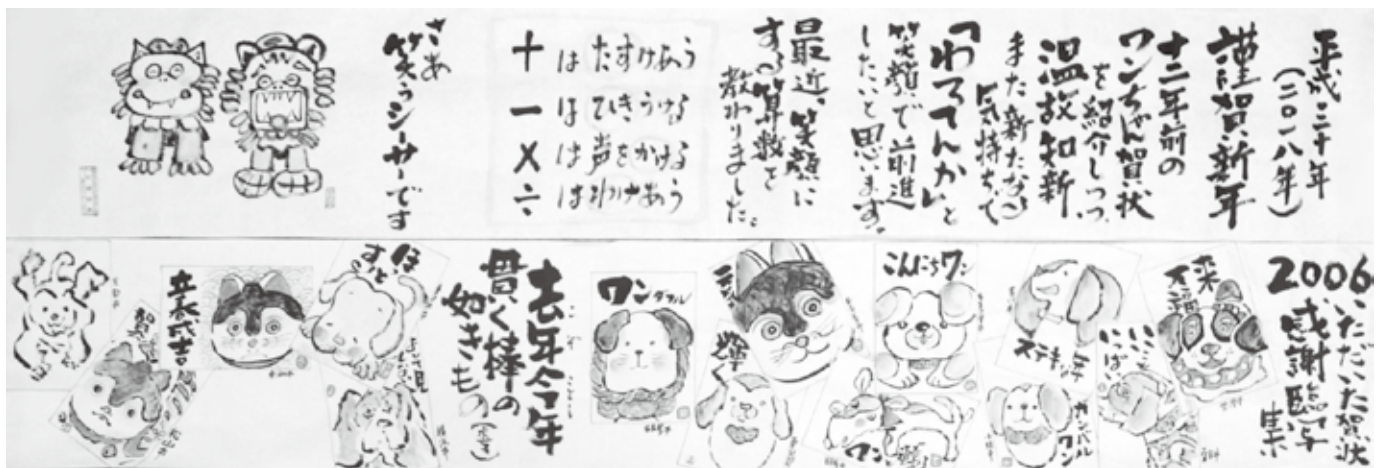 平成三十年
(二〇一八年)
謹賀新年
十二年前の
ワンちゃん賀状
を紹介しつつ
温故知新、
また新たな
気持ちで
「わろてんか」と
笑顔で前進
したいと思います。
最近、笑顔に
する算数を
教わりました。
+はたすけあう
−はひきうける
×は声をかける
÷はわけあう
さあ
笑うシーサーです
2006
いただいた賀状
感謝臨写
来福
ステキな年
いいこといっぱい
こんにちワン
ガンバルワン
輝く
ワン
ワンダフル
去年今年
こぞことし
貫く棒の
如きもの
(虚子)
ほっと
すっと
賀正